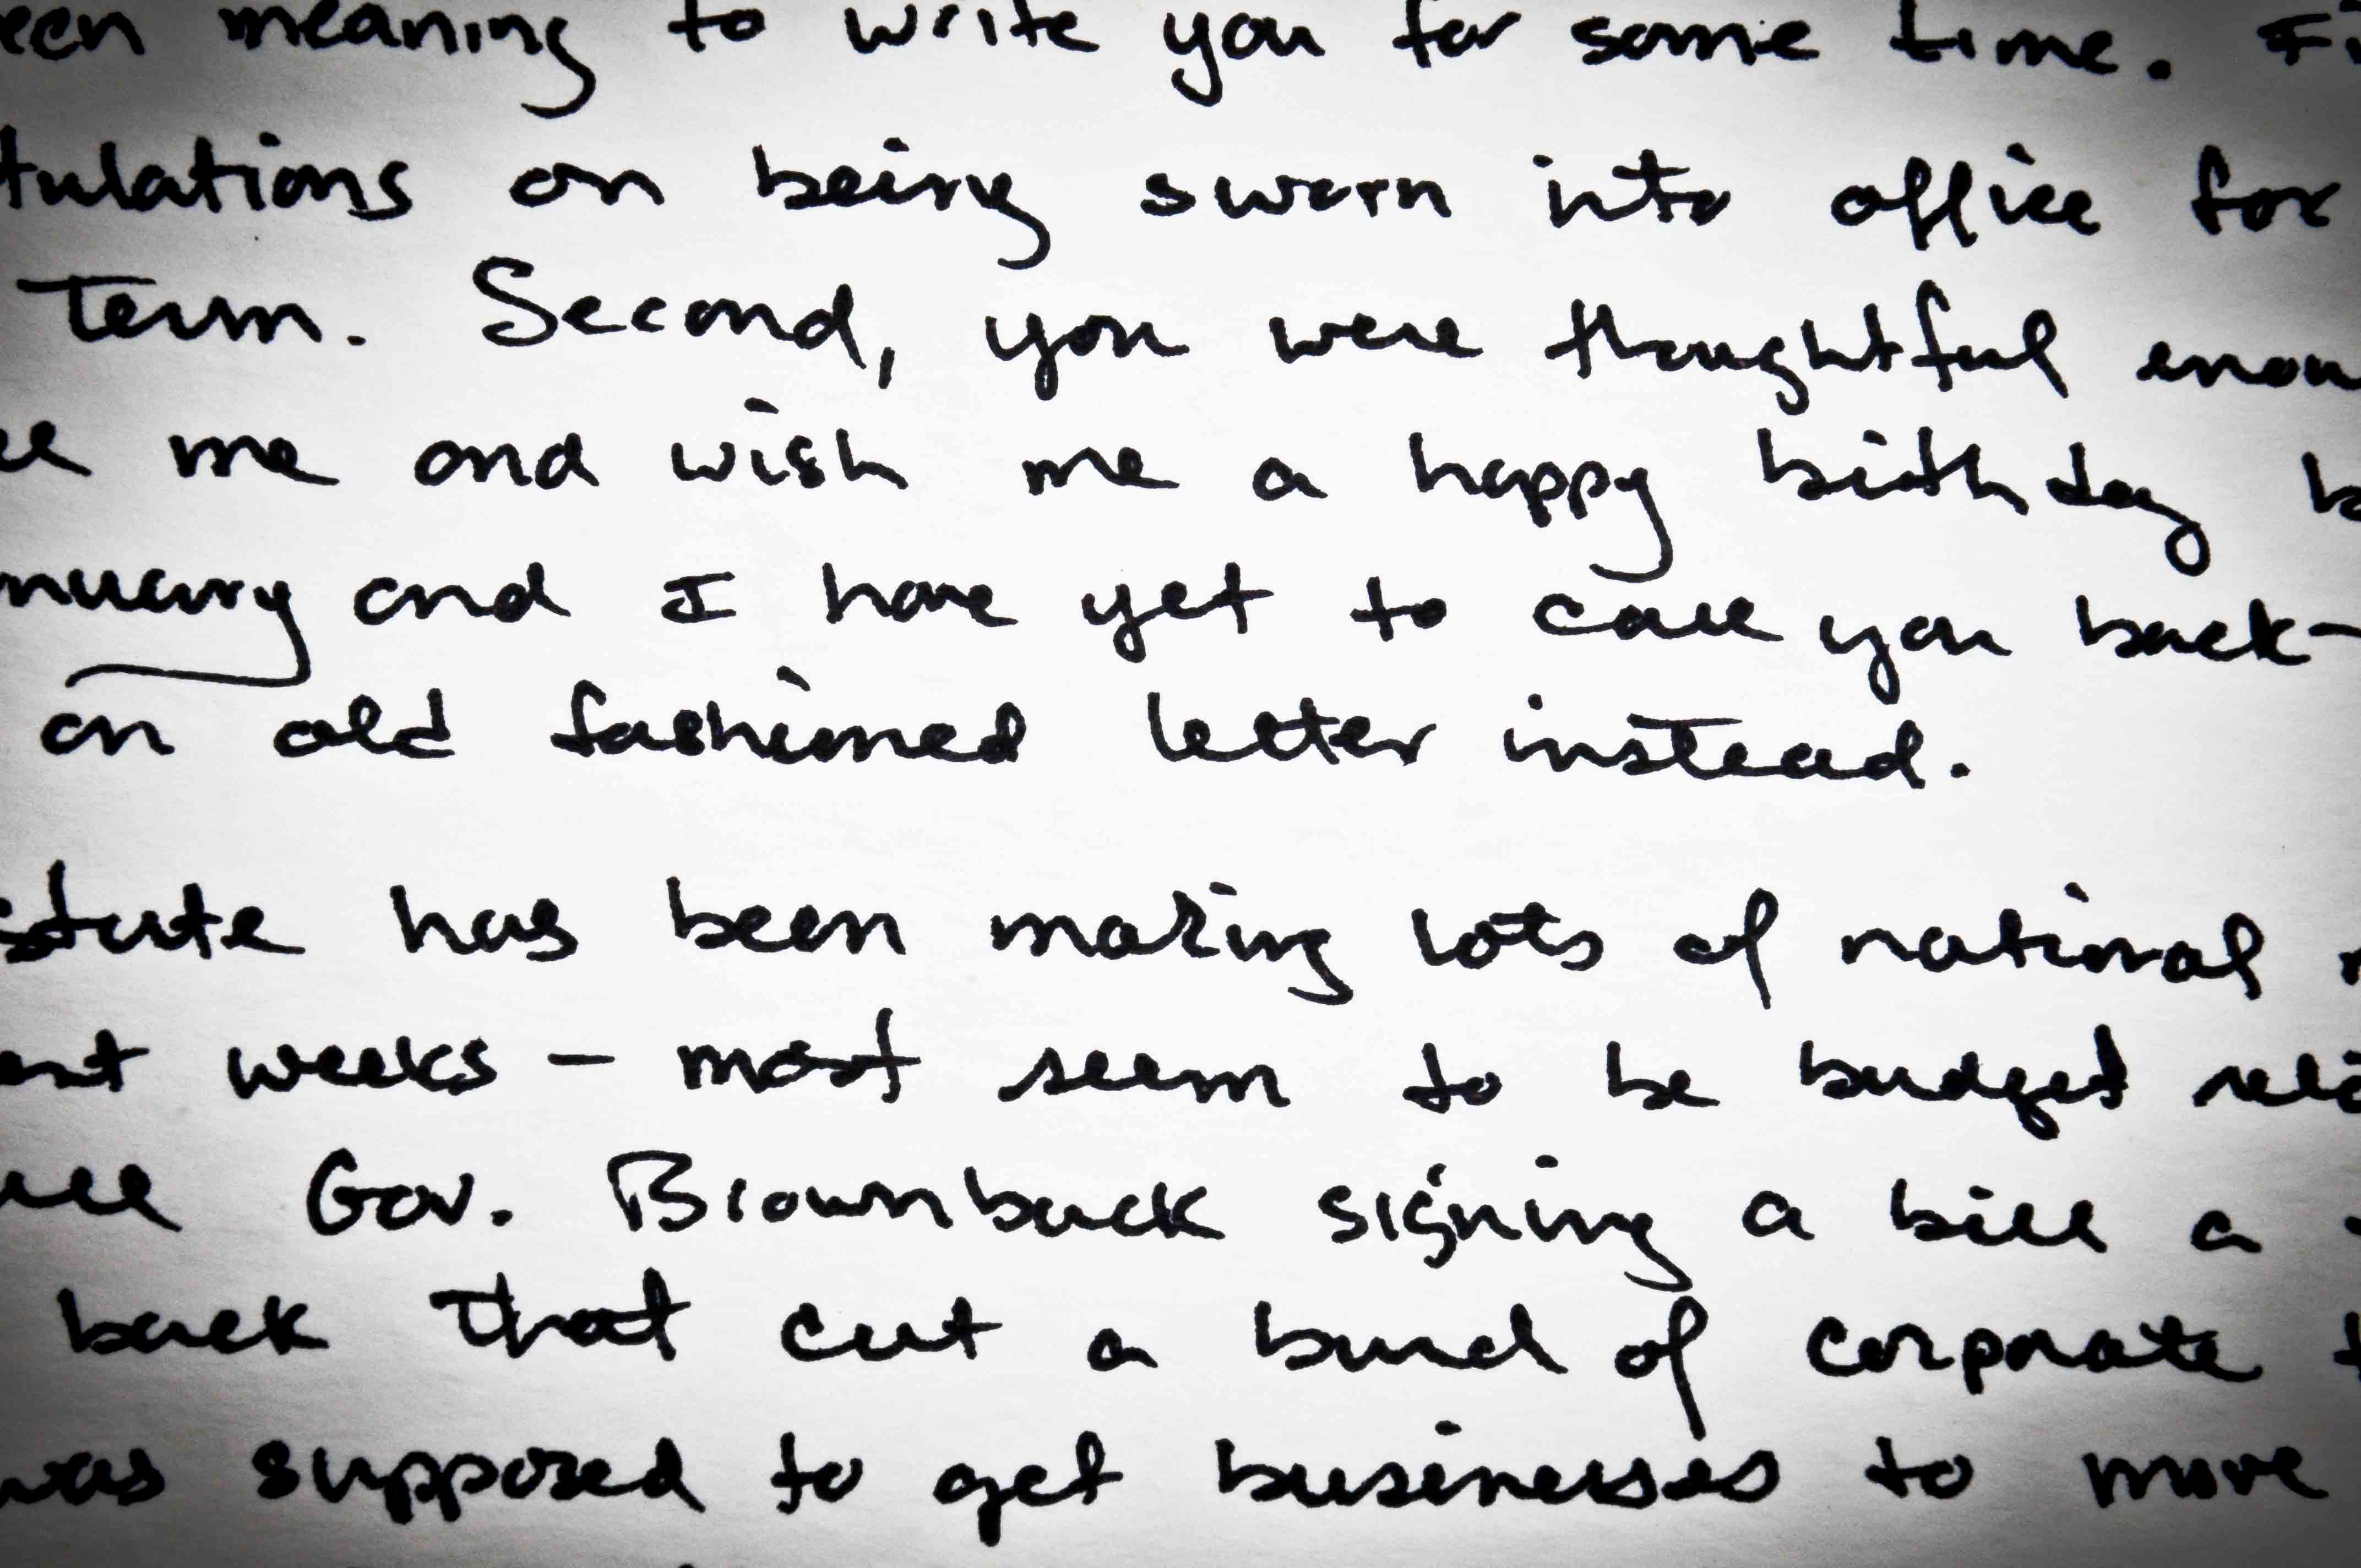 een meaning to write you for some time. Fi
tulations on being sworn into office for
term. Second, you were thoughtful enou
me and wish me a happy birthday b
nuary and I have yet to call you back-
an old fashioned letter instead.
state has been making lots of national
ent weeks - most seem to be budget rela
Gov. Brownback signing a bill a
back that cut a bunch of corporate t
was supposed to get businesses to move